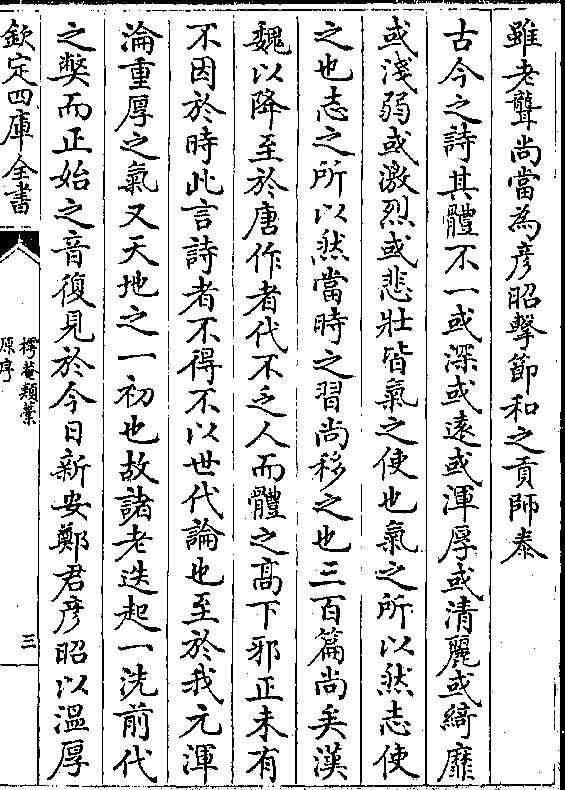 雖老聾尚當為彦昭擊節和之貢師泰
古今之詩其體不一或深或遠或渾厚或清麗或綺靡
或淺弱或激烈或悲壯皆氣之使也氣之所以然志使
之也志之所以然當時之習尚移之也三百篇尚矣漢
魏以降至於唐作者代不乏人而體之髙下邪正未有
不因於時此言詩者不得不以世代論也至於我元渾
淪重厚之氣又天地之一初也故諸老迭起一洗前代
之弊而正始之音復見於今日新安鄭君彦昭以溫厚
欽定四庫全書
樗菴類藁
原序
三